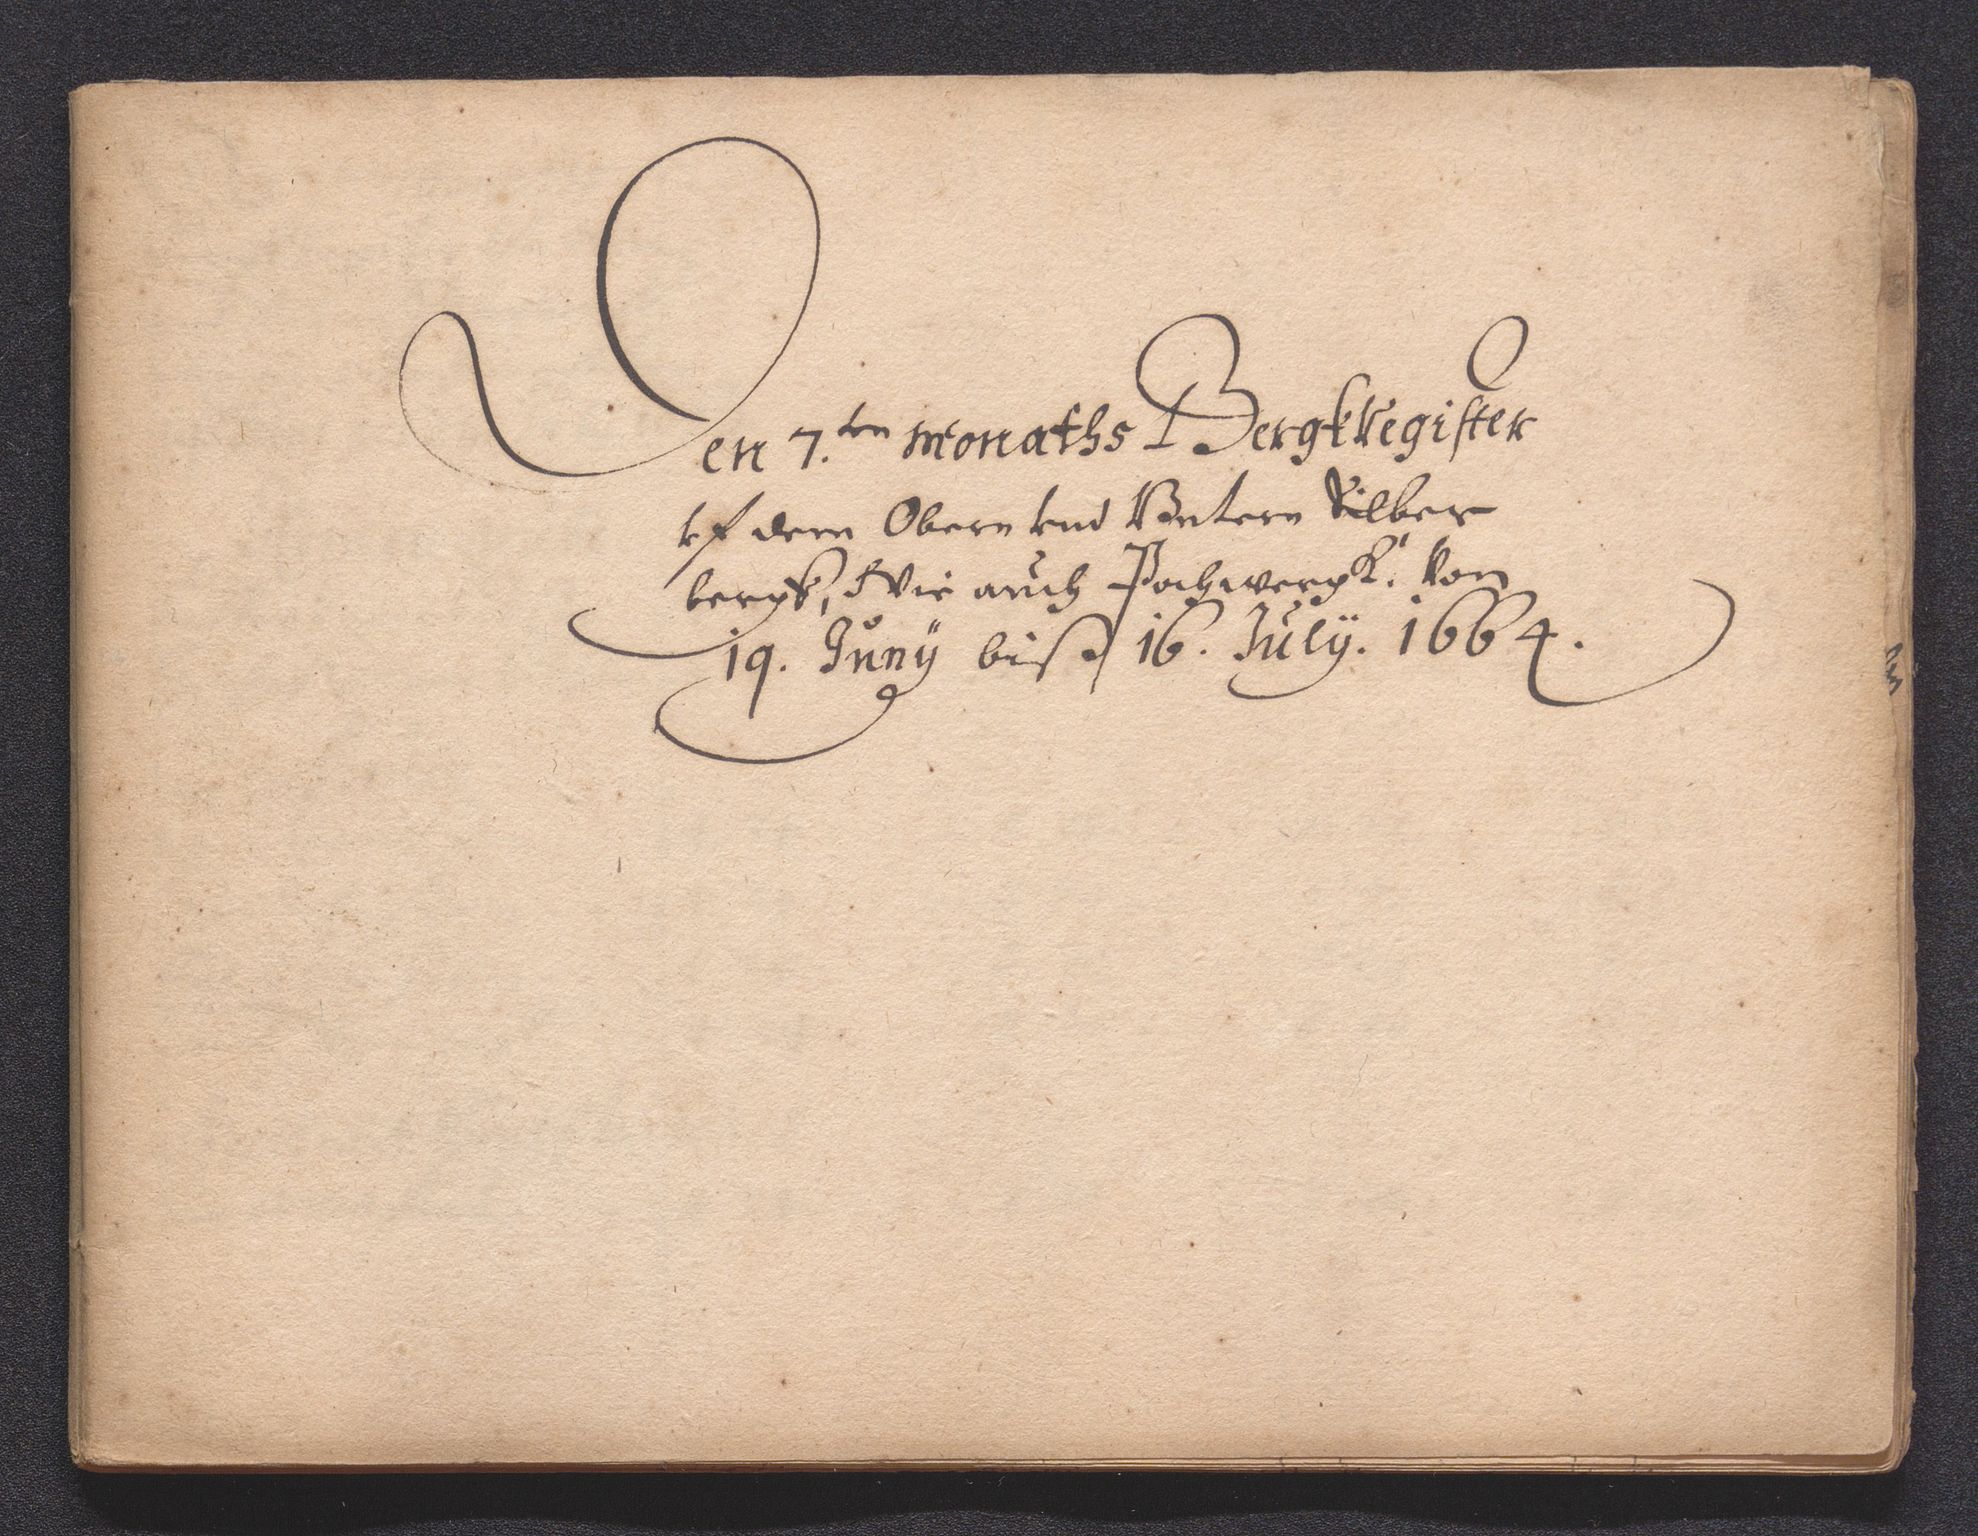 Den 7.ten Monaths BergkRegister
vf dem Obern vnd Vntern Silber
bergk, Wie auch Pochwergk. Von
19. Juny biß 16. July. 1664.